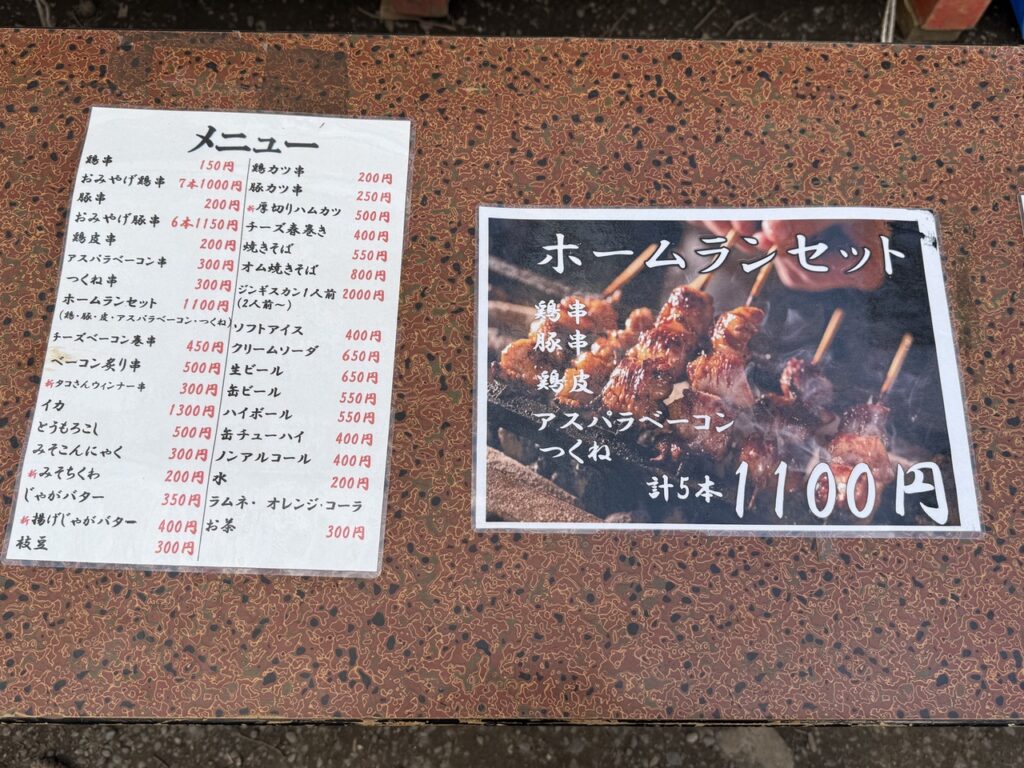 メニュー
鶏串 150円
おみやげ鶏串 7本1000円
豚串 200円
おみやげ豚串 6本1150円
鶏皮串 200円
アスパラベーコン串 300円
つくね串 300円
ホームランセット 1100円
(鶏・豚・皮・アスパラベーコン・つくね)
チーズベーコン巻串 450円
ベーコン炙り串 500円
新タコさんウィンナー串 300円
イカ 1300円
とうもろこし 500円
みそこんにゃく 300円
新みそちくわ 200円
じゃがバター 350円
新揚げじゃがバター 400円
枝豆 300円
鶏カツ串 200円
豚カツ串 250円
新厚切りハムカツ 500円
チーズ春巻き 400円
焼きそば 550円
オム焼きそば 800円
ジンギスカン1人前 2000円
(2人前～)
ソフトアイス 400円
クリームソーダ 650円
生ビール 650円
缶ビール 550円
ハイボール 550円
缶チューハイ 400円
ノンアルコール 400円
水 200円
ラムネ・オレンジ・コーラ
お茶 300円
ホームランセット
鶏串
豚串
鶏皮
アスパラベーコン
つくね
計5本 1100円